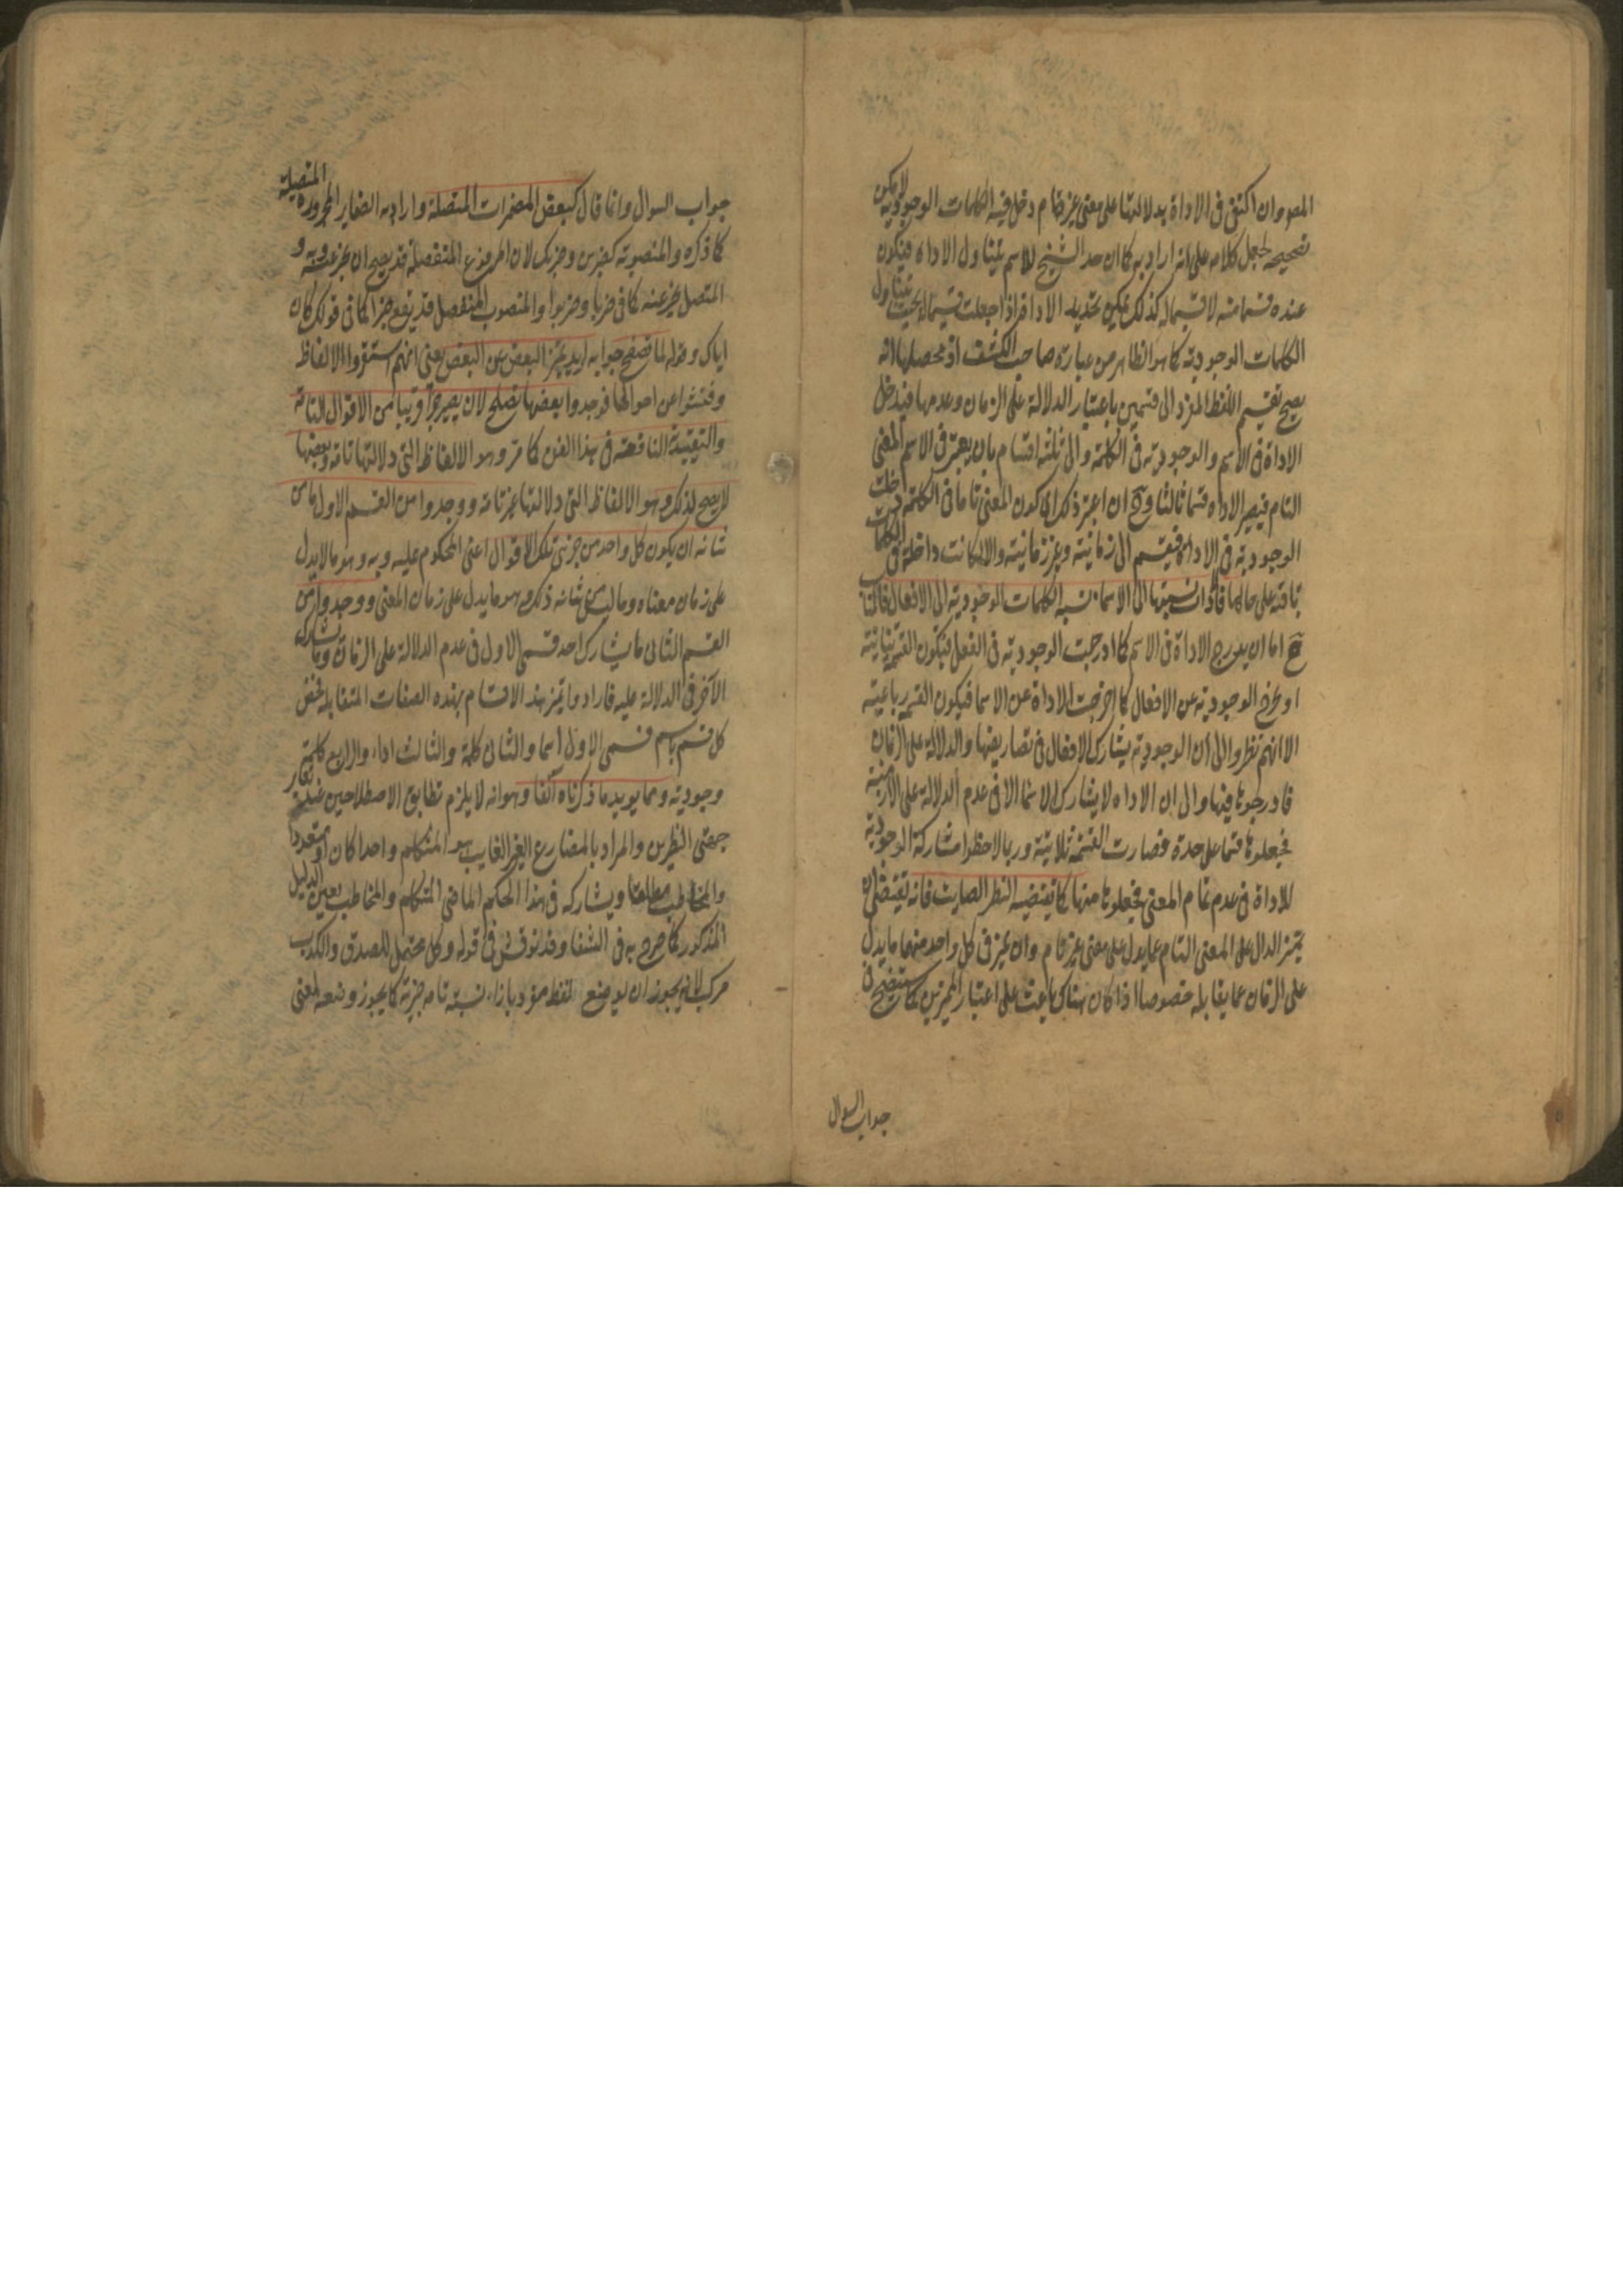 المص وان اكتفى فى الاداة بدلالتها على معنى غير تام دخل فيه الكلمات الوجودية لا يمكن
تصحيحه لجعل كلامه على انه اراد به كما ان حد الشيخ للاسم يتناول الاداة فيكون
عنده قسما منه لا قسيما له كذلك يمكن تحديد الاداة اذا جعلت قسيما له بحيث يتناول
الكلمات الوجودية كما هو الظاهر من عبارة صاحب الكشف اذ محصلها انه
يصح تقسيم اللفظ المفرد الى قسمين باعتبار الدلالة على الزمان وعدمها فيدخل
الاداة فى الاسم والوجودية فى الكلمة والى ثلثة اقسام بان يعتبر فى الاسم المعنى
التام فيصير الاداة قسما ثالثا وح ان اعتبر ذلك اى كون المعنى تاما فى الكلمة دخلت
الوجودية فى الاداة فيقسم الى زمانية وغير زمانية والا لكانت داخلة فى الكلمات
باقية على حالها قالوا نسبتها الى الاسماء نسبة الكلمات الوجودية الى الافعال فالمناسب
ح اما ان يدرج الاداة فى الاسم كما ادرجت الوجودية فى الفعل فيكون القسمة ثنائية
او يخرج الوجودية عن الافعال كما اخرجت الاداة عن الاسما فيكون القسمة رباعية
الا انهم نظروا الى ان الوجودية يشارك الافعال فى تصاريفها والدلالة على الزمان
فادرجوها فيها والى ان الاداة لا يشارك الاسما الا فى عدم الدلالة على الازمنة
فجعلوها قسما على حدة فصارت القسمة ثلاثية وربما لاحظوا مشاركة الوجودية
للاداة فى عدم تمام المعنى فجعلوها منها كما يقتضيه النظر الصايب فانه يقتضى ان
يتميز الدال على المعنى التام عما يدل على معنى غير تام وان يميز فى كل واحد منهما ما يدل
على الزمان عما يقابله خصوصا اذا كان هناك باعث على اعتبار المميزين كما ستتضح فى
جواب السوال
جواب السوال وانما قال كبعض المضمرات المتصلة واراد به الضماير المجرورة المتصلة
كما ذكره والمنصوبة كضربن وضربك لان المرفوع المنفصلة قد يصح ان يخبر عنه وبه و
المتصل يخبر عنه كما فى ضربا وضربوا والمنصوب المنفصل قد يقع خبرا كما فى قولك كان
اياك وقوله لما تصفح جوابه اريد تميز البعض عن البعض يعنى انهم استقروا الالفاظ
وفتشوا عن احوالها فوجدوا بعضها تصلح لان يصير جزأ قريبا من الاقوال التامة
والتقييدية النافعة فى هذا الفن كما مر وهو الالفاظ التى دلالتها تامة وبعضها
لا يصح لذلك وهو الالفاظ التى دلالتها غير تامة ووجدوا من القسم الاول ما من
شانه ان يكون كل واحد من جزئى تلك الاقوال اعنى المحكوم عليه وبه وهو ما لا يدل
على زمان معناه وما ليس من شانه ذلك وهو ما يدل على زمان المعنى ووجدوا من
القسم الثانى ما يشارك احد قسمى الاول فى عدم الدلالة على الزمان وما يشارك
الآخر فى الدلالة عليه فارادوا تميز هذه الاقسام بهذه الصفات المتقابلة فخص
كل قسم باسم فسمى الاول اسما والثانى كلمة والثالث اداة والرابع كلمة
وجودية ومما يويد ما ذكرناه آنفا وهو انه لا يلزم تطابق الاصطلاحين عند تغاير
جهتى النظرين والمراد بالمضارع الغير الغايب هو المتكلم واحدا كان او متعددا
والمخاطب مطلقا ويشاركه فى هذا الحكم الماضى المتكلم والمخاطب بعين الدليل
المذكور كما صرح به فى الشفا وقد نوقش فى قوله وكل محتمل للصدق والكذب
مركب لانه يجوز ان يوضع لفظ مفرد بازاء نسبة تامة خبرية كما يجوز وضعه لمعنى